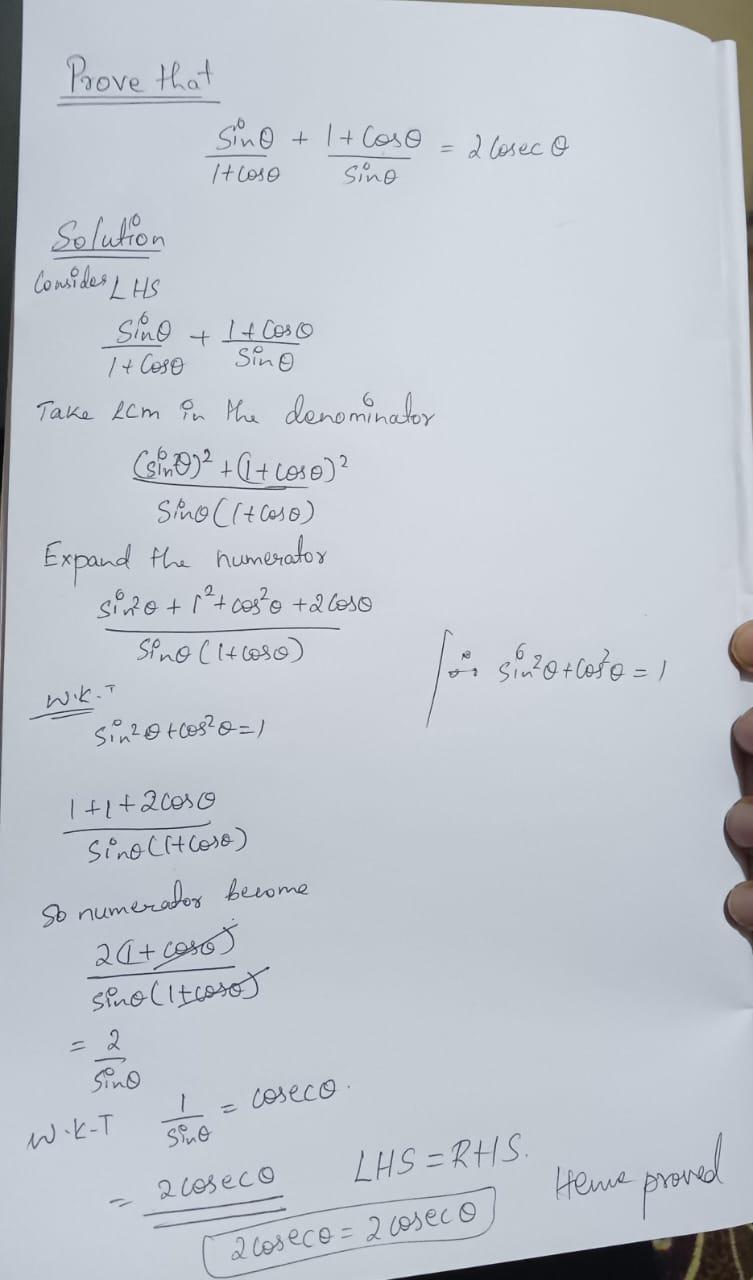 Prove that
Sinθ/(1+cosθ) + (1+Cosθ)/Sinθ = 2 Cosec θ
Solution
Consider LHS
Sinθ/(1+Cosθ) + (1+Cosθ)/Sinθ
Take LCM in the denominator
((sinθ)² + (1+cosθ)²)/(Sinθ(1+Cosθ))
Expand the numerator
(sin²θ + 1² + cos²θ + 2Cosθ)/(Sinθ(1+cosθ))
∵ sin²θ+cos²θ = 1
W.K.T
Sin²θ+cos²θ=1
(1+1+2cosθ)/(Sinθ(1+Cosθ))
So numerator become
2(1+cosθ)/(sinθ(1+cosθ))
= 2/Sinθ
W.K-T 1/Sinθ = cosecθ.
= 2cosecθ LHS = RHS.
2cosecθ = 2cosecθ Hence proved